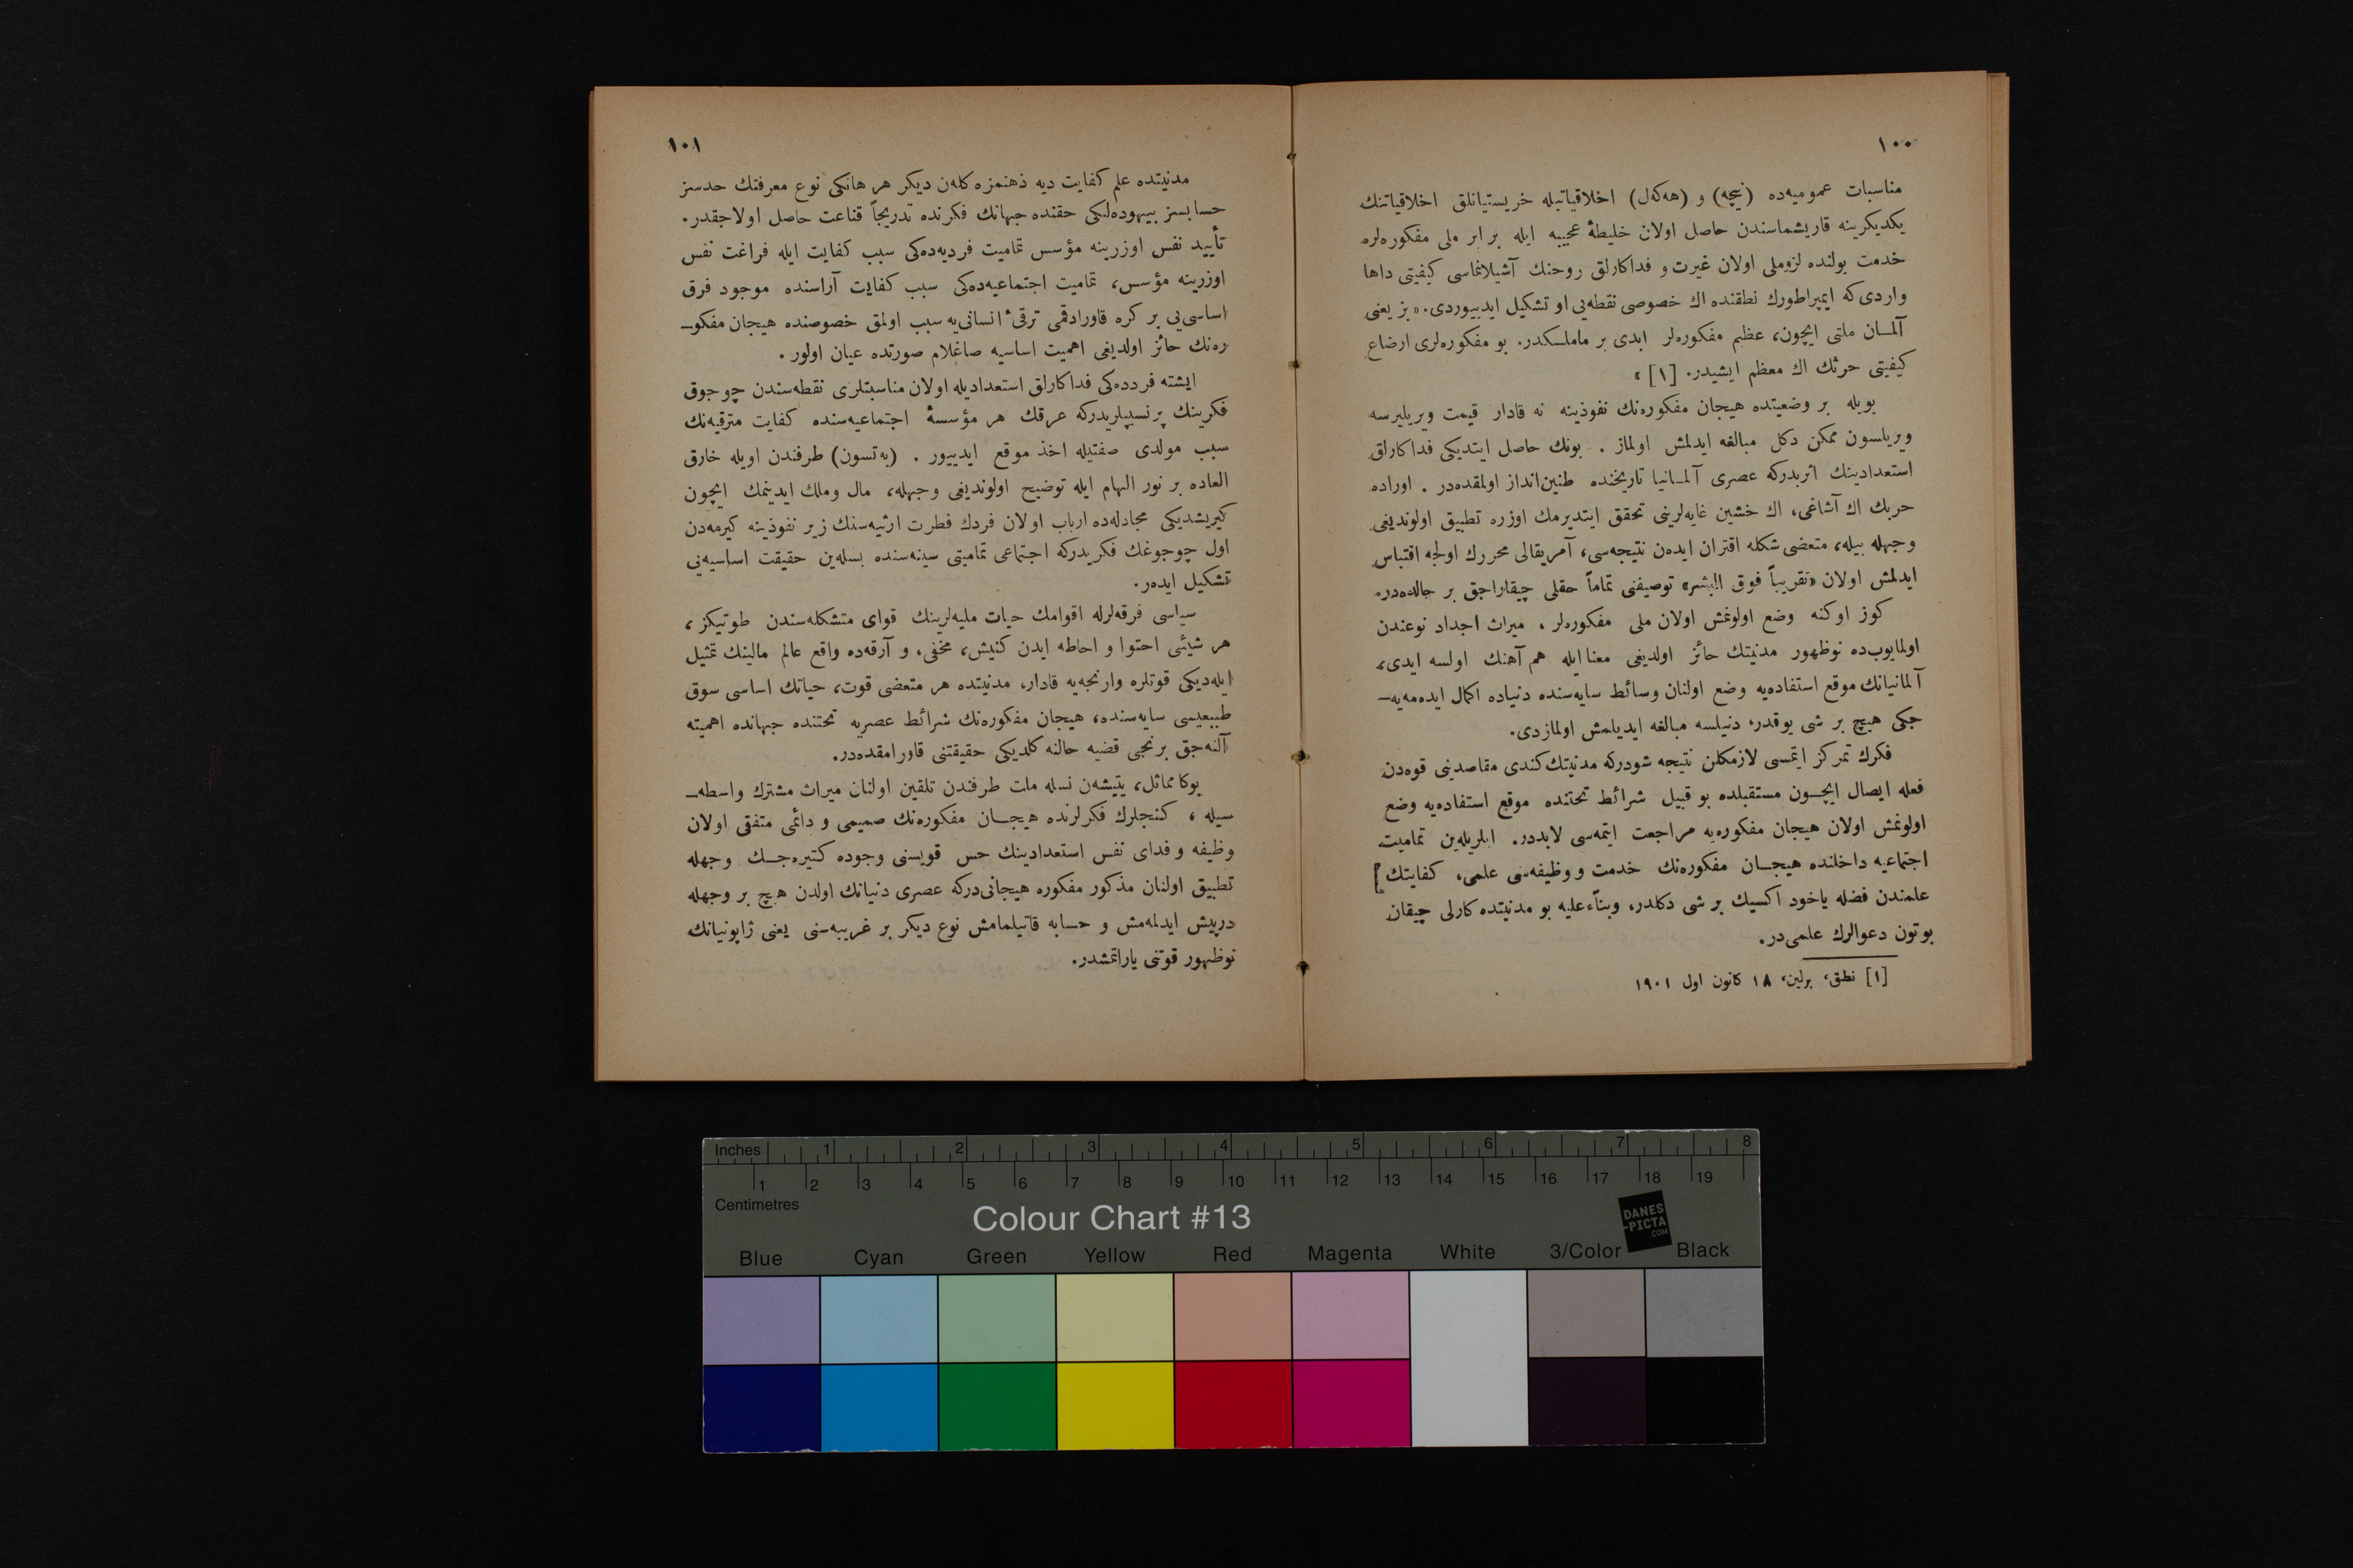 ١٠٠
مناسبات عموميه‌ده (نيچه) و (هه‌كه‌ل) اخلاقياتيله خريستيانلق اخلاقياتنك
يكديكرينه قاريشماسندن حاصل اولان خليطهٔ عجيبه ايله برابر ملى مفكوره‌لره
خدمت يولنده لزوملى اولان غيرت و فداكارلق روحنك آشيلانماسى كيفيتى داها
واردى كه ايمپراطورك نطقنده اك خصوصى نقطه‌يى او تشكيل ايدييوردى. «بز يعنى
آلمـان ملتى ايچون، عظيم مفكوره‌لر ابدى بر ماملـكدر. بو مفكوره‌لرى ارضاع
كيفيتى حرثك اك معظم ايشيدر. [١] »
بويله بر وضعيتده هيجان مفكوره‌نك نفوذينه نه قادار قيمت ويريليرسه
ويريلسون ممكن دكل مبالغه ايدلمش اولماز . بونك حاصل ايتديكى فداكارلق
استعدادينك اثريدركه عصرى آلمـانيا تاريخنده طنين‌انداز اولمقده‌در . اوراده
حربك اك آشاغى، اك خشين غايه‌لرينى تحقق ايتديرمك اوزره تطبيق اولونديغى
وجهله بيله، متعضى شكله اقتران ايده‌ن نتيجه‌سى، آمريقالى محررك اولجه اقتباس
ايدلمش اولان «تقريباً فوق البشر» توصيفنى تماماً حقلى چيقاراجق بر حالده‌در.
كوز اوكنه وضع اولونمش اولان ملى مفكوره‌لر ، ميراث اجداد نوعندن
اولمايوب‌ده نوظهور مدنيتك حائز اولديغى معنا ايله هم آهنك اولسه ايدى،
آلمانيانك موقع استفاده‌يه وضع اولنان وسائط سايه‌سنده دنياده اكمال ايده‌مه‌يه‌ـ
جكى هيچ بر شى يوقدر، دنيلسه مبالغه ايديلمش اولمازدى.
فكرك تمركز ايتمسى لازمكلن نتيجه شودركه مدنيتك كندى مقاصدينى قوه‌دن
فعله ايصال ايچـون مستقبلده بو قبيل شرائط تحتنده موقع استفاده‌يه وضع
اولونمش اولان هيجان مفكوره‌يه مراجعت ايتمه‌سى لابددر. ايلريله‌ين تماميت
اجتماعيه داخلنده هيجـان مفكوره‌نك خدمت و وظيفه‌سى علمى، كفايتك
علمندن فضله ياخود اكسيك بر شى دكلدر، وبناءً عليه بو مدنيتده كارلى چيقان
بوتون دعوالرك علمى‌در.
[١] نطق، برلين، ١٨ كانون اول ١٩٠١
١٠١
مدنيتده علم كفايت ديه ذهنمزه كله‌ن ديكر هر هانكى نوع معرفتك حدسز
حسابسز بيهوده‌لكى حقنده جهانك فكرنده تدريجاً قناعت حاصل اولاجقدر.
تأييد نفس اوزرينه مؤسس تماميت فرديه‌ده‌كى سبب كفايت ايله فراغت نفس
اوزرينه مؤسس، تماميت اجتماعيه‌ده‌كى سبب كفايت آراسنده موجود فرق
اساسى‌يى بر كره قاورادقمى ترقىٔ انسانى‌يه سبب اولمق خصوصنده هيجان مفكو‌ـ
ره‌نك حائز اولديغى اهميت اساسيه صاغلام صورتده عيان اولور .
ايشته فردده‌كى فداكارلق استعداديله اولان مناسبتلرى نقطه‌سندن چوجوق
فكرينك پرنسيپلريدركه عرقك هر مؤسسهٔ اجتماعيه‌سنده كفايت مترقيه‌نك
سبب مولدى صفتيله اخذ موقع ايدييور . (به‌تسون) طرفندن اويله خارق
العاده بر نور الهام ايله توضيح اولونديغى وجهله، مال وملك ايدينمك ايچون
كيريشديكى مجادله‌ده ارباب اولان فردك فطرت ارثيه‌سنك زير نفوذينه كيرمه‌دن
اول چوجوغك فكريدركه اجتماعى تماميتى سينه‌سنده بسله‌ين حقيقت اساسيه‌يى
تشكيل ايده‌ر.
سياسى فرقه‌لرله اقوامك حيات مليه‌لرينك قواى متشكله‌سندن طوتيكز ،
هر شيئى احتوا و احاطه ايدن كنيش، مخفى، و آرقه‌ده واقع عالم مالينك تمثيل
ايله‌ديكى قوتلره وارنجه‌يه قادار، مدنيتده هر متعضى قوت، حياتك اساسى سوق
طبيعيسى سايه‌سنده، هيجان مفكوره‌نك شرائط عصريه تحتنده جهانده اهميته
آلنه‌جق برنجى قضيه حالنه كلديكى حقيقتنى قاورامقده‌در.
بوكا مماثل، يتيشه‌ن نسله ملت طرفندن تلقين اولنان ميراث مشترك واسطه‌ـ
سيله ، كنجلرك فكرلرنده هيجـان مفكوره‌نك صميمى و دائمى متفقى اولان
وظيفه و فداى نفس استعدادينك حس قويسنى وجوده كتيره‌جـك وجهله
تطبيق اولنان مذكور مفكوره هيجانى‌دركه عصرى دنيانك اولدن هيچ بر وجهله
درپيش ايدلمه‌مش و حسابه قاتيلمامش نوع ديكر بر غريبه‌سنى يعنى ژاپونيانك
نوظهور قوتنى ياراتمشدر.
Inches 1 2 3 4 5 6 7 8
1 2 3 4 5 6 7 8 9 10 11 12 13 14 15 16 17 18 19
Centimetres
Colour Chart #13
DANES
-PICTA
.COM
Blue Cyan Green Yellow Red Magenta White 3/Color Black